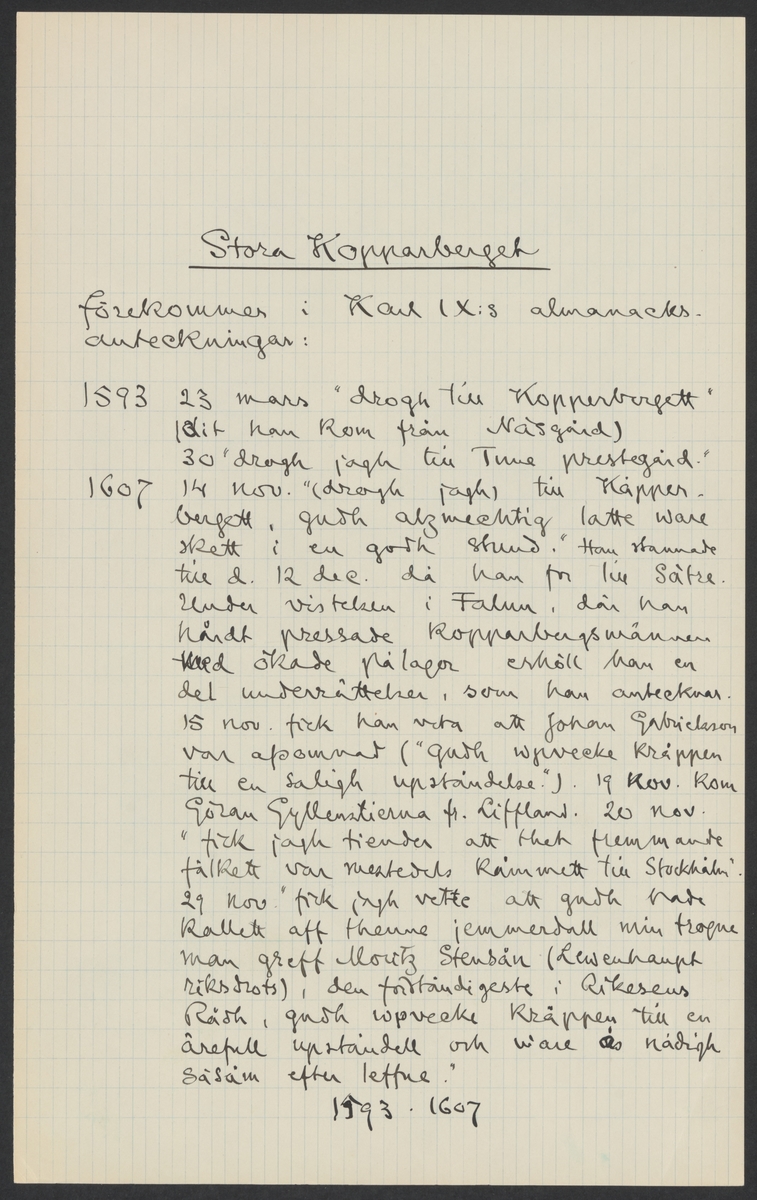 Stora Kopparberget
förekommer i Karl IX:s almanacks-
anteckningar:
1593 23 mars "drogh till Kopperbergett"
(dit han kom från Näsgård)
30 "drogh jagh till Tuna prestegård."
1607 14 nov. "(drogh jagh) till Kåpper-
bergett, gudh alzmechtig latte ware
skett i en godh stund." Han stannade
till d. 12 dec. då han for till Sätre.
Under vistelsen i Falun, där han
hårdt pressade Kopparbergsmännen
med ökade pålagor erhöll han en
del underrättelser, som han antecknar.
15 nov. fick han veta att Johan Gabrielsson
var afsomnad ("gudh wpvecke kråppen
till en saligh upståndelse."). 19 Nov. kom
Göran Gyllenstierna fr. Liffland. 20 nov.
"fick jagh tiender att thet fremmande
fålkett var mestedels kåmmett till Stockhålm".
29 nov. "fick jagh vette att gudh hade
kallett aff thenne jemmerdall min trogne
man greff Moritz Stensån (Lewenhaupt
riksdrots), den förståndigeste i Rikesens
Rådh, gudh wpvecke kråppen till en
ärefull upståndell och ware ås nådigh
såsåm efter leffne."
1593 . 1607